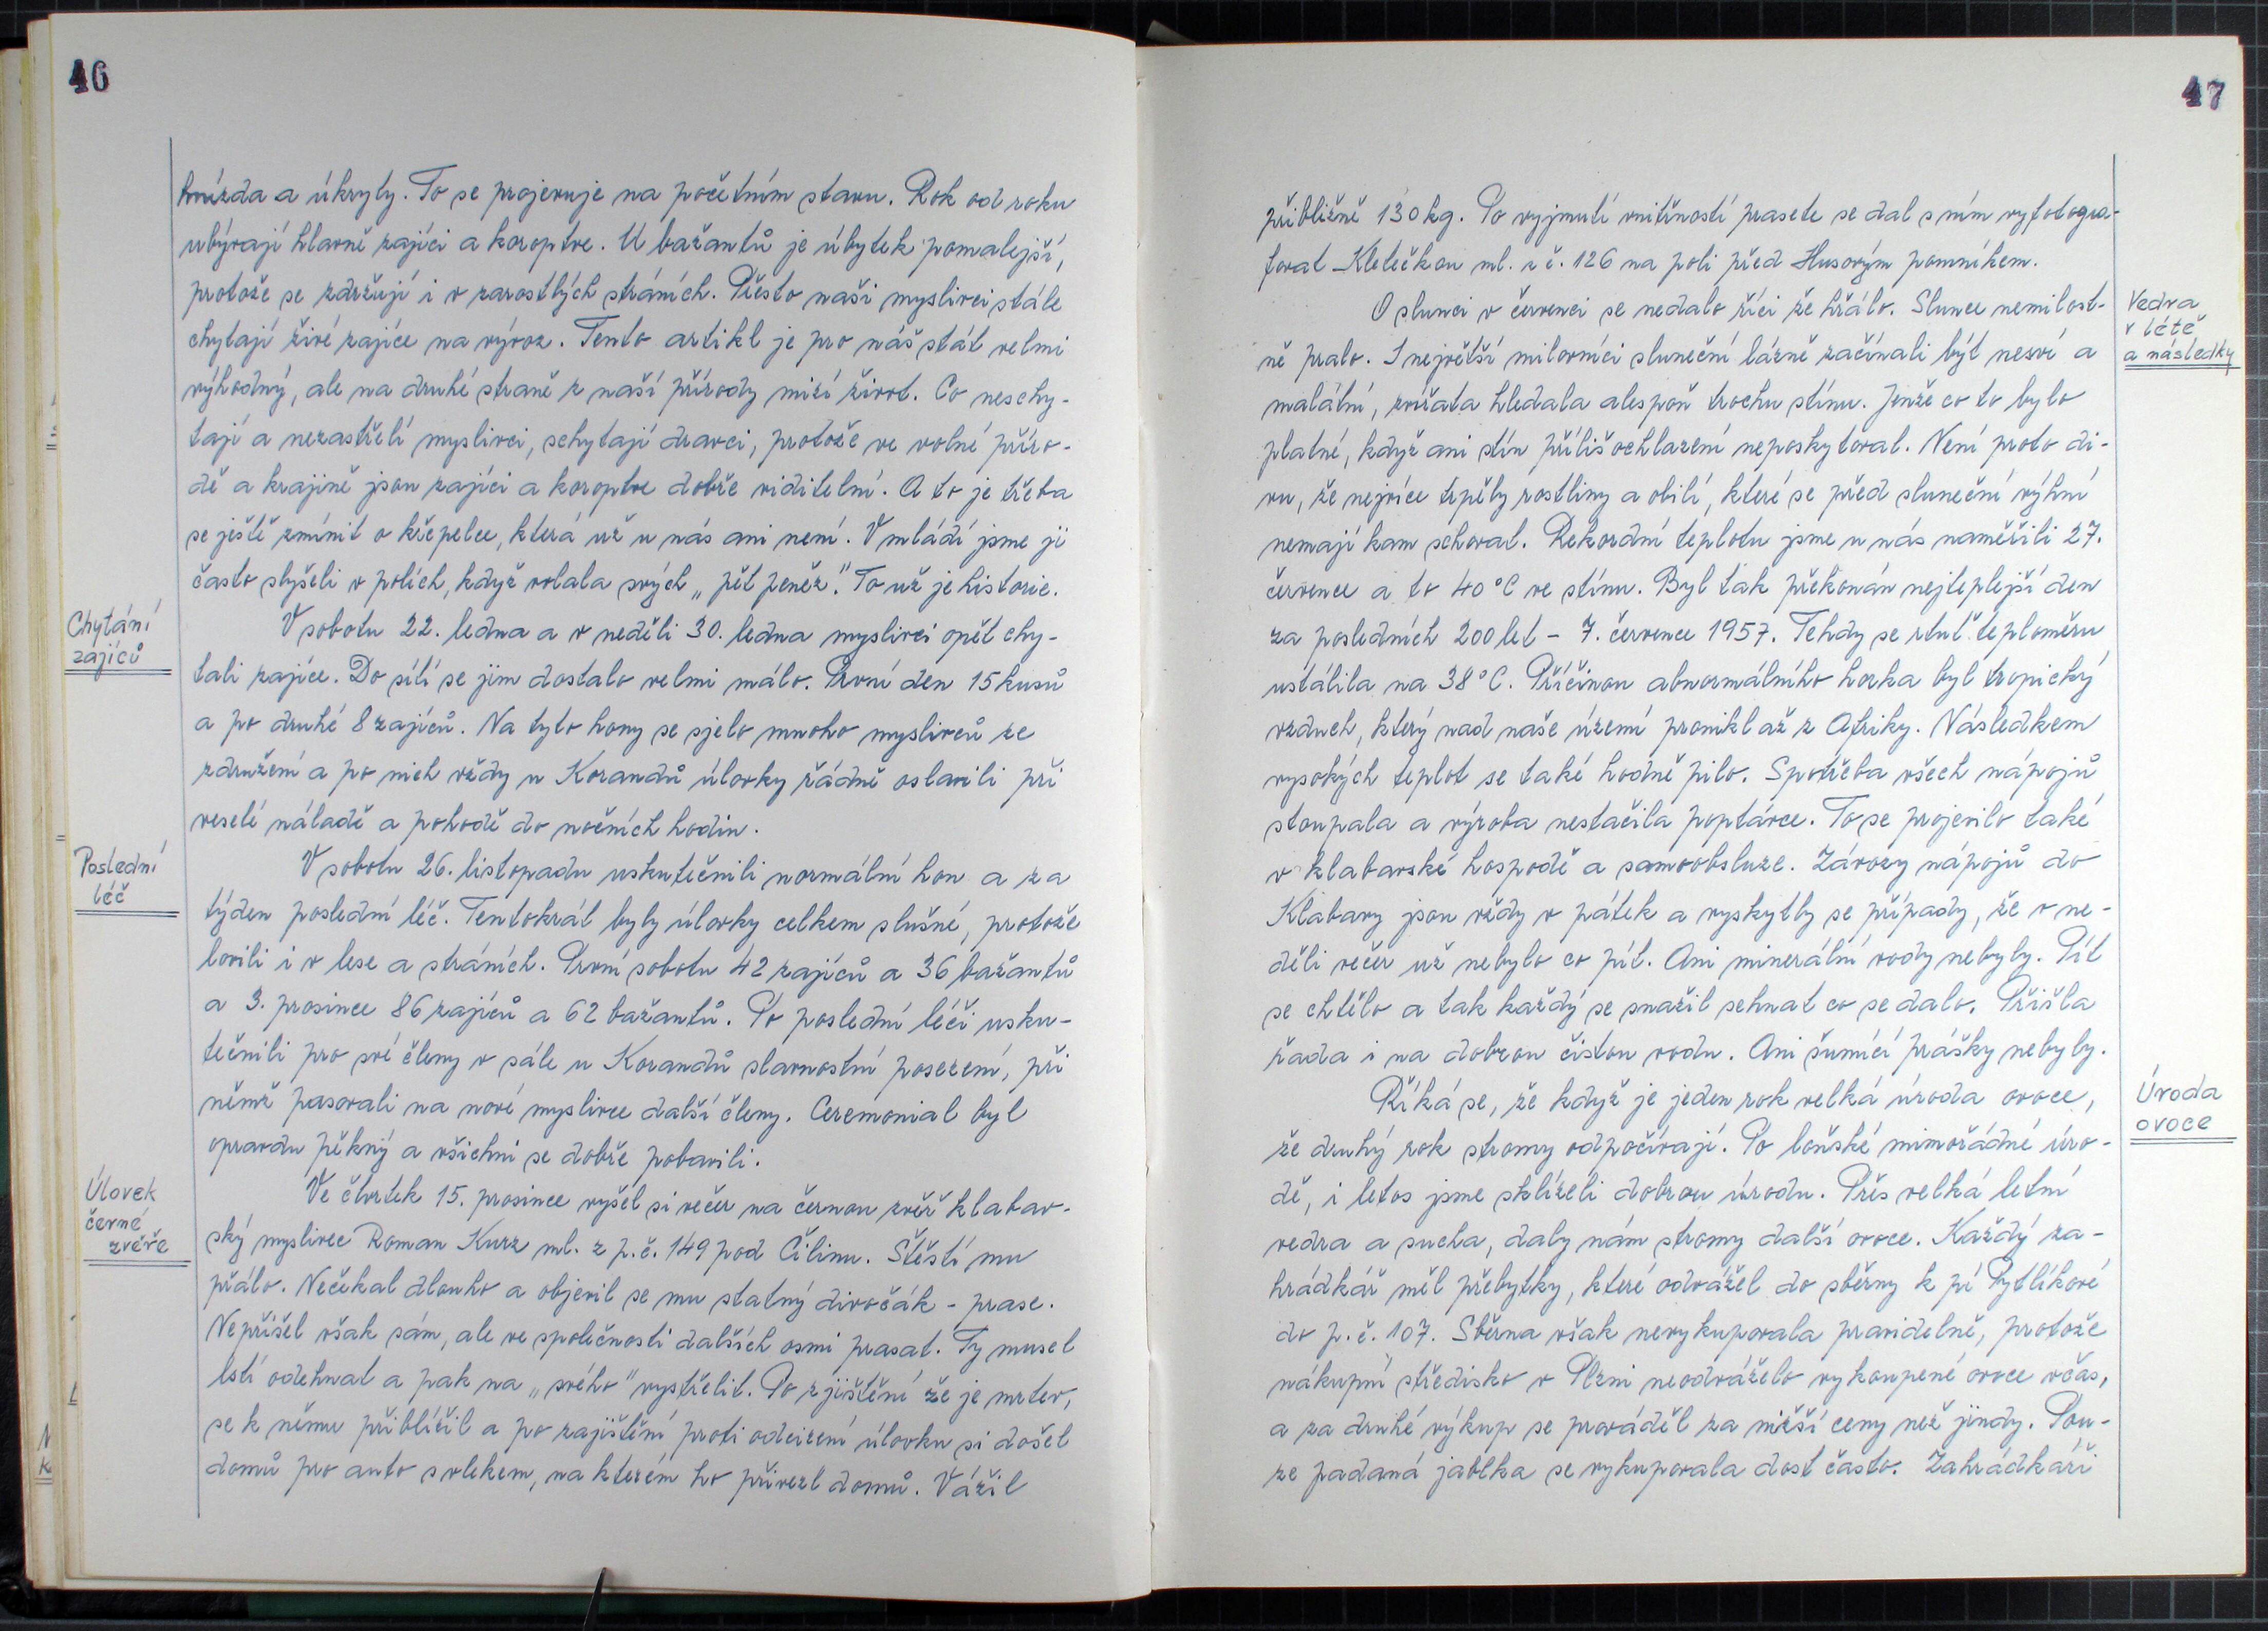 46
hnízda a úkryty. To se projevuje na početním stavu. Rok od roku
ubývají hlavně zajíci a koroptve. U bažantů je úbytek pomalejší,
protože se zdržují i v zarostlých stráních. Přesto naši myslivci stále
chytají živé zajíce na vývoz. Tento artikl je pro náš stát velmi
výhodný, ale na druhé straně z naší přírody mizí život. Co neschy-
tají a nezastřelí myslivci, schytají dravci, protože ve volné příro-
dě a krajině jsou zajíci a koroptve dobře viditelní. A to je třeba
se ještě zmínit o křepelce, která už u nás ani není. V mládí jsme ji
často slyšeli v polích, když volala svých „pět peněz". To už je historie.
Chytání
zajíců
V sobotu 22. ledna a v neděli 30. ledna myslivci opět chy-
tali zajíce. Do sítí se jim dostalo velmi málo. První den 15 kusů
a po druhé 8 zajíců. Na tyto hony se sjelo mnoho myslivců ze
združení a po nich vždy u Korandů úlovky řádně oslavili při
veselé náladě a pohodě do nočních hodin.
Poslední
léč
V sobotu 26. listopadu uskutečnili normální hon a za
týden poslední léč. Tentokrát byly úlovky celkem slušné, protože
lovili i v lese a stráních. První sobotu 42 zajíců a 36 bažantů
a 3. prosince 86 zajíců a 62 bažantů. Po poslední léči usku-
tečnili pro své členy v sále u Korandů slavnostní posezení, při
němž pasovali na nové myslivce další členy. Ceremonial byl
opravdu pěkný a všichni se dobře pobavili.
Úlovek
černé
zvěře
Ve čtvrtek 15. prosince vyšel si večer na černou zvěř klabav-
ský myslivec Roman Kurz ml. z p.č. 149 pod Čilinu. Štěstí mu
přálo. Nečekal dlouho a objevil se mu statný divočák - prase.
Nepřišel však sám, ale ve společnosti dalších osmi prasat. Ty musel
lstí odehnat a pak na „svého" vystřelit. Po zjištění že je mrtev,
se k němu přiblížil a po zajištění proti odcizení úlovku si došel
domů pro auto s vlekem, na kterém ho přivezl domů. Vážil
47
přibližně 130 kg. Po vyjmutí vnitřností prasete se dal s ním vyfotogra-
foval Kletečkou ml. z č. 126 na poli před Husovým pomníkem.
Vedra
v létě
a následky
O slunci v červenci se nedalo říci že hřálo. Slunce nemilost-
ně pralo. I největší milovníci sluneční lázně začínali být nesví a
malátní, zvířata hledala alespoň trochu stínu. Jenže co to bylo
platné, když ani stín příliš ochlazení neposkytoval. Není proto di-
vu, že nejvíce trpěly rostliny a obilí, které se před sluneční výhní
nemají kam schovat. Rekordní teplotu jsme u nás naměřili 27.
července a to 40°C ve stínu. Byl tak překonán nejteplejší den
za posledních 200 let - 7. července 1957. Tehdy se rtuť teploměru
ustálila na 38°C. Příčinou abnormálního horka byl tropický
vzduch, který nad naše území pronikl až z Afriky. Následkem
vysokých teplot se také hodně pilo. Spotřeba všech nápojů
stoupala a výroba nestačila poptávce. To se projevilo také
v klabavské hospodě a samoobsluze. Závozy nápojů do
Klabavy jsou vždy v pátek a vyskytly se případy, že v ne-
děli večer už nebylo co pít. Ani minerální vody nebyly. Pít
se chtělo a tak každý se snažil sehnat co se dalo. Přišla
řada i na dobrou čistou vodu. Ani šumící prášky nebyly.
Úroda
ovoce
Říká se, že když je jeden rok velká úroda ovoce,
že druhý rok stromy odpočívají. Po loňské mimořádné úro-
dě, i letos jsme sklízeli dobrou úrodu. Přes velká letní
vedra a sucha, daly nám stromy další ovoce. Každý za-
hrádkář měl přebytky, které odvážel do sběrny k pí Pytlíkové
do p.č. 107. Sběrna však nevykupovala pravidelně, protože
nákupní středisko v Plzni neodváželo vykoupené ovoce včas,
a za druhé výkup se prováděl za nižší ceny než jindy. Pou-
ze padaná jablka se vykupovala dost často. Zahrádkáři